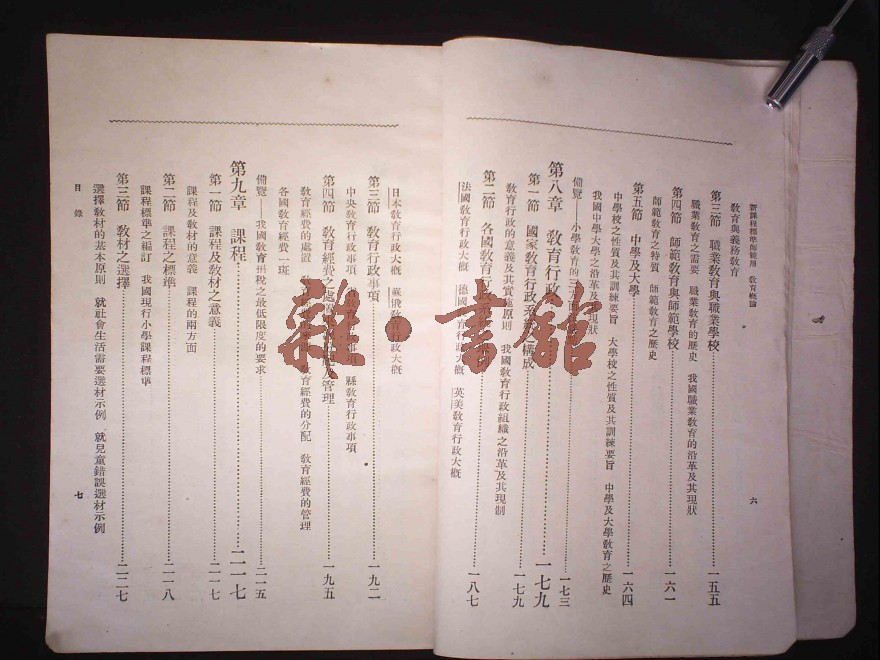 新課程標準師範用 教育概論
教育與義務教育
第三節 職業教育與職業學校……一五五
職業教育之需要 職業教育的歷史 我國職業教育的沿革及其現狀
第四節 師範教育與師範學校……一六一
師範教育之特質 師範教育之歷史
第五節 中學及大學……一六四
中學校之性質及其訓練要旨 大學校之性質及其訓練要旨 中學及大學教育之歷史
我國中學大學之沿革及其現狀
備覽——小學教育的三……一七三
第八章 教育行政……一七九
第一節 國家教育行政系統之構成……一七九
教育行政的意義及其實施原則 我國教育行政組織之沿革及其現制
第二節 各國教育行政……一八七
法國教育行政大概 德國教育行政大概 英美教育行政大概
六
日本教育行政大概 蘇俄教育行政大概
第三節 教育行政事項……一九二
中央教育行政事項 教育行政事項 縣教育行政事項
第四節 教育經費之處置及管理……一九五
教育經費的處置 教育經費的分配 教育經費的管理
各國教育經費一斑
備覽——我國教育捐稅之最低限度的要求……二一五
第九章 課程……二一七
第一節 課程及教材之意義……二一七
課程及教材的意義 課程的兩方面
第二節 課程之標準……二一八
課程標準之編訂 我國現行小學課程標準
第三節 教材之選擇……二二七
選擇教材的基本原則 就社會生活需要選材示例 就兒童錯誤選材示例
目錄
七
雜·書館